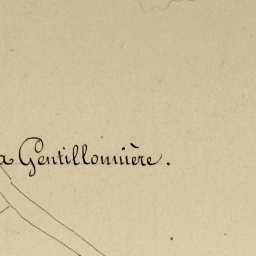 a Gentillomière.